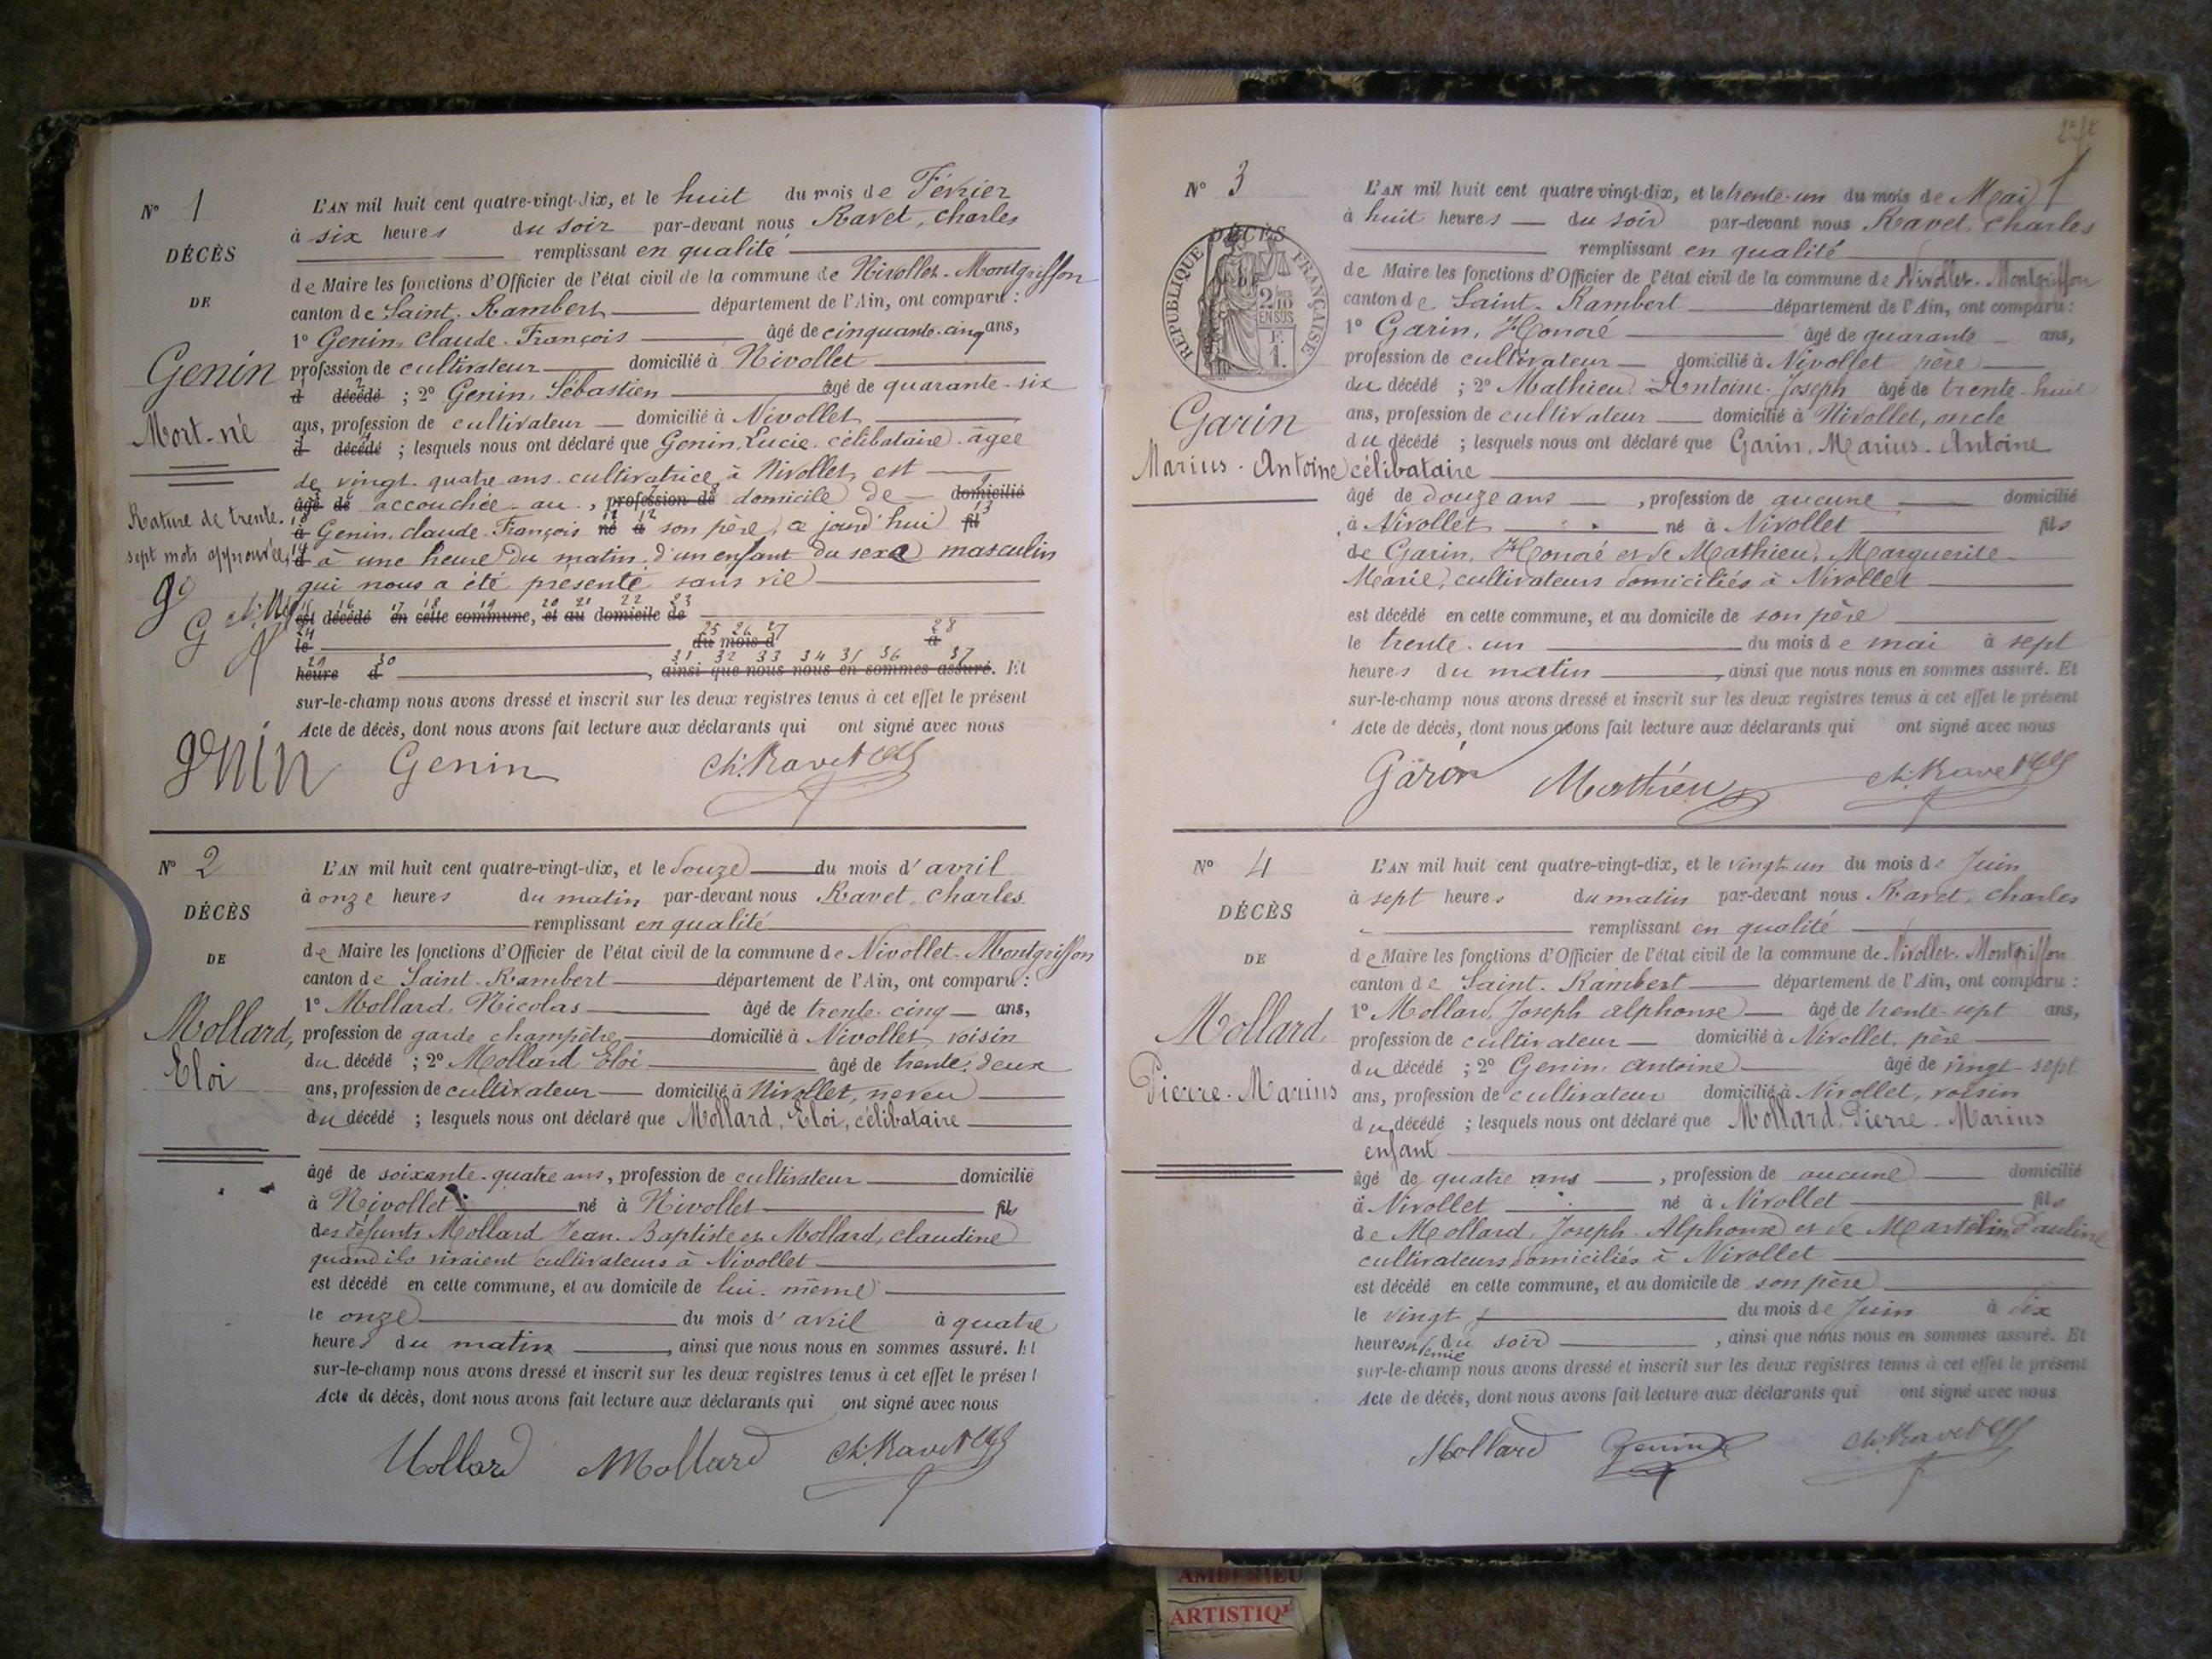 N° 1
DÉCÈS
DE
Genin
Mort-né
Rature de trente-
sept mots approuvée,
L'AN mil huit cent quatre-vingt-dix, et le huit du mois de Février
à six heures du soir par-devant nous Ravet, Charles
remplissant en qualité
de Maire les fonctions d'Officier de l'état civil de la commune de Nivollet-Montgriffon
canton de Saint-Rambert département de l'Ain, ont comparu :
1° Genin, Claude-François âgé de cinquante-cinq ans,
profession de cultivateur domicilié à Nivollet
d décédé ; 2° Genin, Sébastien âgé de quarante-six
ans, profession de cultivateur domicilié à Nivollet
d décédé ; lesquels nous ont déclaré que Genin, Lucie, célibataire âgée
de vingt-quatre ans, cultivatrice à Nivollet, est
âgé de accouchée au, profession de domicile de domicilié
à Genin, Claude-François né à son père, ce jourd'hui fil
d à une heure du matin, d'un enfant du sexe masculin
qui nous a été présenté sans vie
est décédé en cette commune, et au domicile de
le du mois d à
heure d , ainsi que nous nous en sommes assuré. Et
sur-le-champ nous avons dressé et inscrit sur les deux registres tenus à cet effet le présent
Acte de décès, dont nous avons fait lecture aux déclarants qui ont signé avec nous
genin Genin Ch. Ravet
N° 2
DÉCÈS
DE
Mollard,
Eloi
L'AN mil huit cent quatre-vingt-dix, et le douze du mois d'avril
à onze heures du matin par-devant nous Ravet, Charles
remplissant en qualité
de Maire les fonctions d'Officier de l'état civil de la commune de Nivollet-Montgriffon
canton de Saint-Rambert département de l'Ain, ont comparu :
1° Mollard, Nicolas âgé de trente-cinq ans,
profession de garde champêtre domicilié à Nivollet, voisin
du décédé ; 2° Mollard Eloi âgé de trente-deux
ans, profession de cultivateur domicilié à Nivollet, neveu
du décédé ; lesquels nous ont déclaré que Mollard, Eloi, célibataire
âgé de soixante-quatre ans, profession de cultivateur domicilié
à Nivollet né à Nivollet fils
des défunts Mollard, Jean-Baptiste et Mollard, Claudine
quand ils vivaient cultivateurs à Nivollet
est décédé en cette commune, et au domicile de lui-même
le onze du mois d'avril à quatre
heures du matin , ainsi que nous nous en sommes assuré. Et
sur-le-champ nous avons dressé et inscrit sur les deux registres tenus à cet effet le présent
Acte de décès, dont nous avons fait lecture aux déclarants qui ont signé avec nous
Mollard Mollard Ch. Ravet
N° 3
DÉCÈS
RÉPUBLIQUE FRANÇAISE
2/10
EN SUS
F.
1.
Garin
Marius-Antoine
L'AN mil huit cent quatre-vingt-dix, et le trente-un du mois de Mai
à huit heures du soir par-devant nous Ravet, Charles
remplissant en qualité
de Maire les fonctions d'Officier de l'état civil de la commune de Nivollet-Montgriffon
canton de Saint-Rambert département de l'Ain, ont comparu :
1° Garin, Honoré âgé de quarante ans,
profession de cultivateur domicilié à Nivollet père
du décédé ; 2° Mathieu, Antoine-Joseph âgé de trente-huit
ans, profession de cultivateur domicilié à Nivollet, oncle
du décédé ; lesquels nous ont déclaré que Garin, Marius-Antoine
célibataire
âgé de douze ans , profession de aucune domicilié
à Nivollet né à Nivollet fils
de Garin, Honoré et de Mathieu, Marguerite-
Marie, cultivateurs domiciliés à Nivollet
est décédé en cette commune, et au domicile de son père
le trente-un du mois de mai à sept
heures du matin , ainsi que nous nous en sommes assuré. Et
sur-le-champ nous avons dressé et inscrit sur les deux registres tenus à cet effet le présent
Acte de décès, dont nous avons fait lecture aux déclarants qui ont signé avec nous
Garin Mathieu Ch. Ravet
N° 4
DÉCÈS
DE
Mollard,
Pierre-Marius
L'AN mil huit cent quatre-vingt-dix, et le vingt-un du mois de Juin
à sept heures du matin par-devant nous Ravet, Charles
remplissant en qualité
de Maire les fonctions d'Officier de l'état civil de la commune de Nivollet-Montgriffon
canton de Saint-Rambert département de l'Ain, ont comparu :
1° Mollard, Joseph Alphonse âgé de trente-sept ans,
profession de cultivateur domicilié à Nivollet, père
du décédé ; 2° Genin, Antoine âgé de vingt-sept
ans, profession de cultivateur domicilié à Nivollet, voisin
du décédé ; lesquels nous ont déclaré que Mollard, Pierre-Marius
enfant
âgé de quatre ans , profession de aucune domicilié
à Nivollet né à Nivollet fils
de Mollard, Joseph-Alphonse et de Martelin, Pauline
cultivateurs domiciliés à Nivollet
est décédé en cette commune, et au domicile de son père
le vingt du mois de Juin à dix
heures et demie du soir , ainsi que nous nous en sommes assuré. Et
sur-le-champ nous avons dressé et inscrit sur les deux registres tenus à cet effet le présent
Acte de décès, dont nous avons fait lecture aux déclarants qui ont signé avec nous
Mollard Genin Ch. Ravet
AMBERIEU
ARTISTIQ